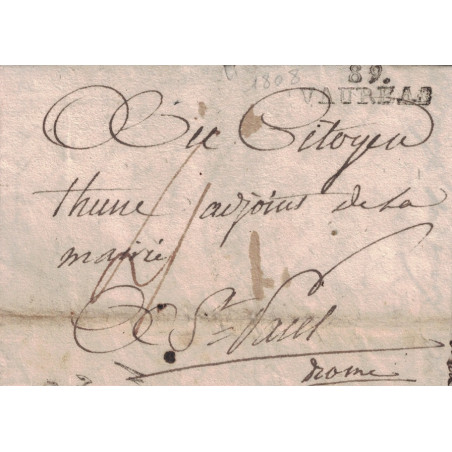 1808
89.
VAUREAS
Citoyen
thune adjoint de la
mairie
A St Paul
Drome